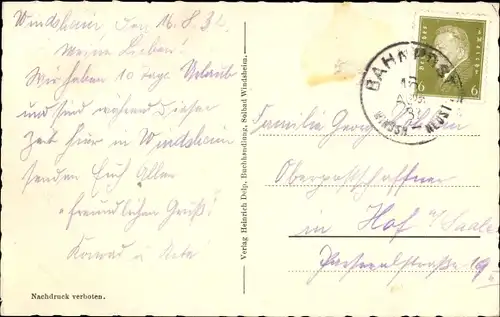 Windsheim, den 16.8.32
Meine Lieben!
Wir haben 10 Tage Urlaub
und sind während dieser
Zeit hier in Windsheim
senden Euch Allen
freundlichen Gruß!
Konrad u.
Nachdruck verboten.
Verlag Heinrich Delp, Buchhandlung, Solbad Windsheim.
6 6
BAHNPOST
Familie Georg
Oberpostschaffner
in Hof a/Saale